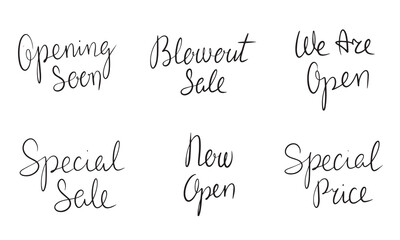 Opening
Soon
Blowout
Sale
We Are
Open
Special
Sale
Now
Open
Special
Price